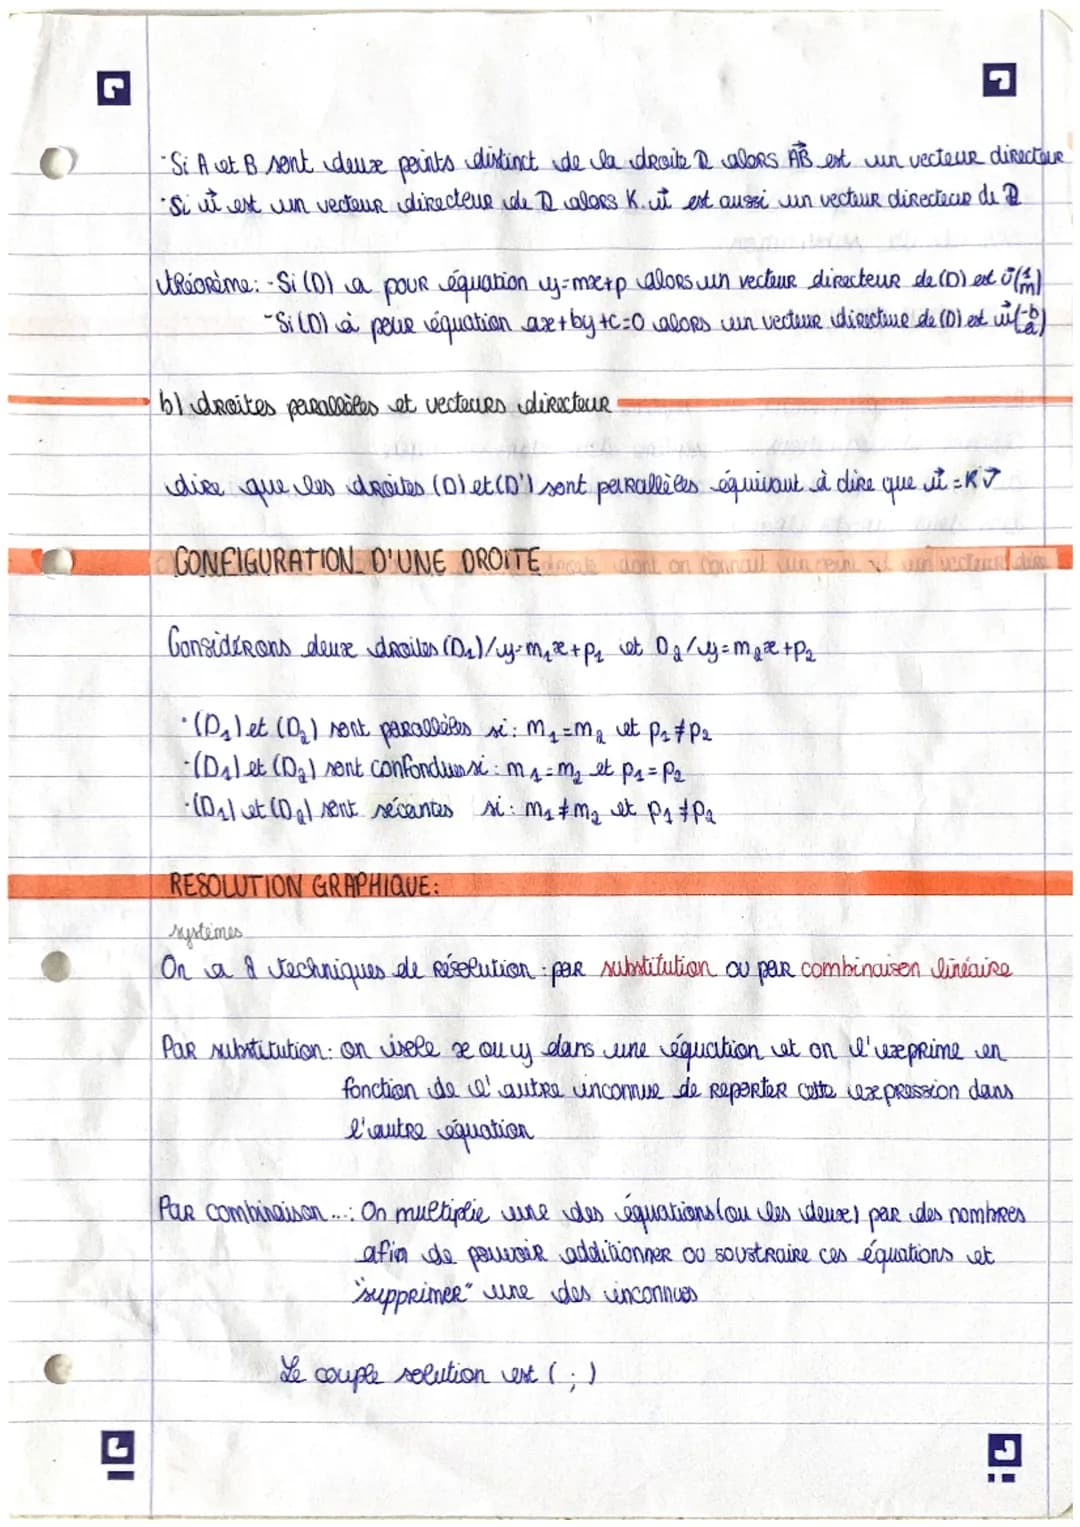 ·Si A et B sont deux points distinct de la droite D alors AB⃗ est un vecteur directeur
·Si u⃗ est un vecteur directeur de D alors K.u⃗ est aussi un vecteur directeur de D
théorème: -Si (D) a pour équation y=mx+p alors un vecteur directeur de (D) est u⃗(1 m)
-Si (D) à pour équation ax+by+c=0 alors un vecteur directeur de (D) est u⃗(-b a)
b) droites parallèles et vecteurs directeur
dire que les droites (D) et (D') sont parallèles équivaut à dire que u⃗ = K v⃗
CONFIGURATION D'UNE DROITE
Considérons deux droites (D₁)/y=m₁x+p₁ et D₂/y=m₂x+p₂
·(D₁) et (D₂) sont parallèles si: m₁=m₂ et p₁≠p₂
·(D₁) et (D₂) sont confondues si: m₁=m₂ et p₁=p₂
·(D₁) et (D₂) sont sécantes si: m₁≠m₂ et p₁≠p₂
RESOLUTION GRAPHIQUE:
systèmes
On a 2 techniques de résolution: par substitution ou par combinaison linéaire
Par substitution: on isole x ou y dans une équation et on l'exprime en
fonction de l'autre inconnue de reporter cette expression dans
l'autre équation
Par combinaison ...: On multiplie une des équations (ou les deux) par des nombres
afin de pouvoir additionner ou soustraire ces équations et
"supprimer" une des inconnues
Le couple solution est ( ; )